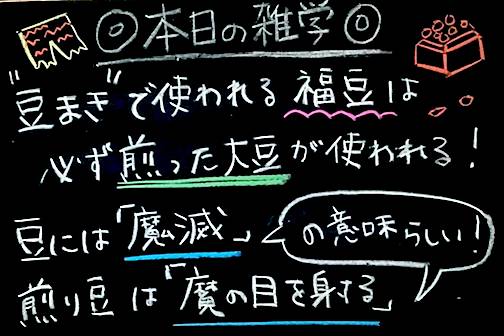 ◎本日の雑学◎
"豆まき"で使われる福豆は
必ず煎った大豆が使われる!
豆には「魔滅」の意味らしい!
煎り豆は「魔の目を射する」